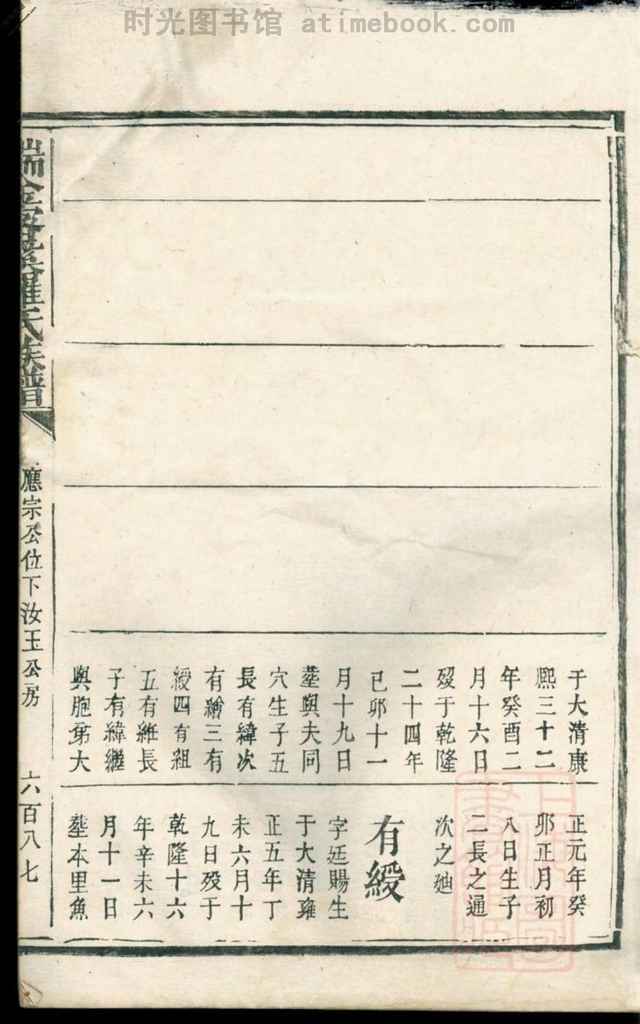 时光图书馆 atimebook.com
瑞金密溪羅氏族譜
應宗公位下汝玉公房
六百八七
于大清康
熙三十二
年癸酉二
月十六日
歿于乾隆
二十四年
己卯十一
月十九日
塟與夫同
穴生子五
長有緯次
有繪三有
綬四有組
五有維長
子有緯繼
與胞弟大
正元年癸
卯正月初
八日生子
二長之通
次之廸
有綬
字廷賜生
于大清雍
正五年丁
未六月十
九日歿于
乾隆十六
年辛未六
月十一日
塟本里魚